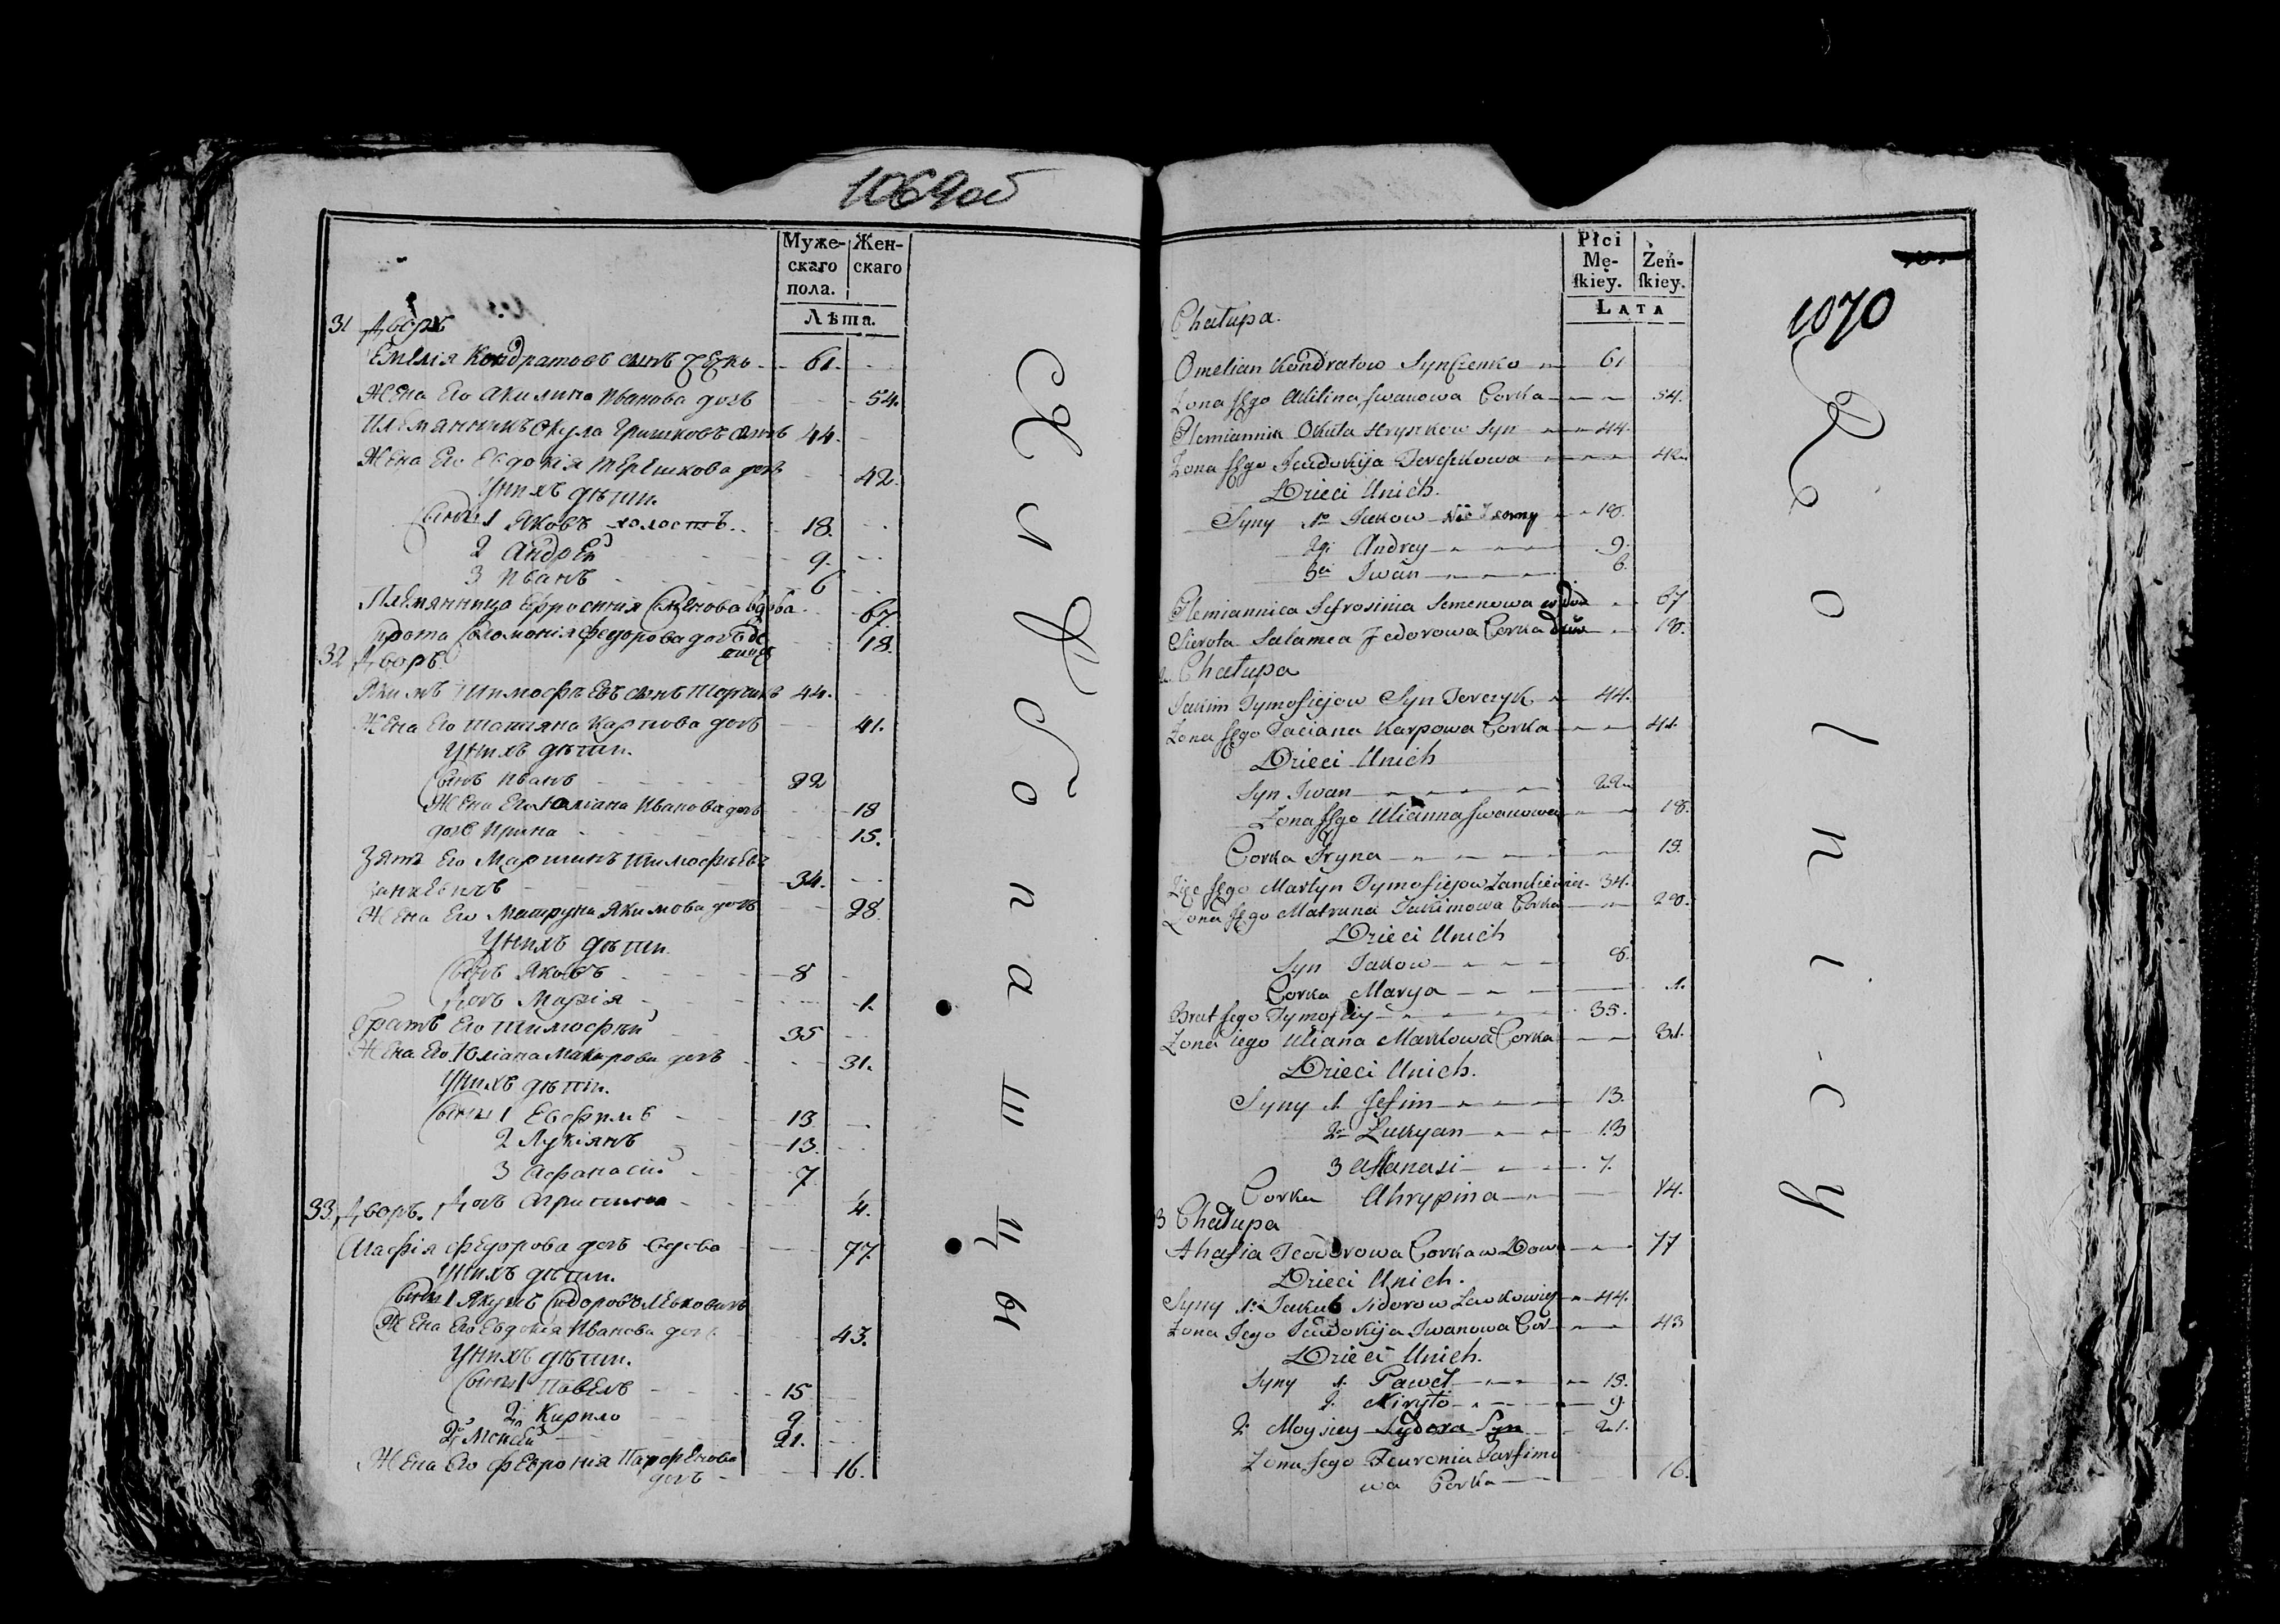 1069об
Муже-
скаго
пола.
Жен-
скаго
Лѣта.
31 Дворъ
Емелiя Кондратовъ сынъ
61.
Жена Его Акилина Иванова дочь
54.
Племянникъ Окула Гришковъ сынъ
44.
Жена Его Евдокiя Терешкова дочь
42.
Унихъ дѣти.
Сыны 1 Яковъ холостъ
18.
2 Андрей
9.
3 Иванъ
6
Племянница Ефросинiя Семенова вдова
67.
Сирота Соломонiя Федорова дочь
18.
32 Дворъ
Якимъ Тимофѣевъ сынъ Терчикъ
44.
Жена Его Татiяна Карпова дочь
41.
Унихъ дѣти.
Сынъ Иванъ
22
Жена Его Юлiана Иванова дочь
18
дочь Ирина
15.
Зять Его Мартинъ Тимофѣевъ
Занкевичъ
34.
Жена Его Матруна Якимова дочь
28.
Унихъ дѣти
Сынъ Яковъ
8
Дочь Марiя
1.
Братъ Его Тимофей
35
Жена Его Юлiана Макарова дочь
31.
Унихъ дѣти.
Сыны 1 Евфимъ
13
2 Лукiянъ
13.
3 Афанасiй
7
Дочь Агрипина
4.
33. Дворъ.
Агафiя Федорова дочь вдова
77.
Унихъ дѣти.
Сыны 1 Якубъ Сидоровъ Левковичъ
Жена Его Евдокiя Иванова дочь
43.
Унихъ дѣти.
Сыны 1 Павелъ
15
2й Кирило
9
2й Моисей
21.
Жена Его Феврониiя Парфенова
дочь
16.
Хлѣбопашцы
Płci
Mę-
ſkiey.
Żeń-
ſkiey.
LATA
1070
Chałupa.
Omelian Kondratow Syn Czenko
61
Zona Jego Akilina Jwanowa Corka
54.
Plemiannik Okuła Hryszkow Syn
44.
Zona Jego Jeudokija Tereszkowa
42.
Dzieci Unich.
Syny 1o Jakow
18.
2gi Andrey
9.
3ci Jwan
6.
Plemiannica Jefrosinia Semenowa wdowa
67
Sierota Salamea Fedorowa Corka
18.
Chałupa
Jakim Tymofiejow Syn Terczyk
44.
Zona Jego Taciana Karpowa Corka
41.
Dzieci Unich
Syn Jwan
22.
Zona Jego Ulianna Jwanowa
18.
Corka Jryna
15.
Zięć Jego Martyn Tymofiejow Zankiewicz
34.
Zona Jego Matruna Jakimowa Corka
28.
Dzieci Unich
Syn Jakow
8.
Corka Marya
1.
Brat Jego Tymofiey
35.
Zona iego Uliana Markowa Corka
31.
Dzieci Unich.
Syny 1. Jefim
13.
2. Łukyan
13
3 Affanasi
7.
Corka Ahrypina
14.
3 Chałupa
Ahafia Teodorowa Corka wdowa
77
Dzieci Unich.
Syny 1: Jakub Sidorow Lewkowicz
44.
Zona Jego Jeudokija Jwanowa Cor
43
Dzieci Unich.
Syny 1. Paweł
15.
2. Kiryło
9.
2: Moysiey Sydora Syn
21.
Zona Jego Feuronia Parfimo
wa Corka
16.
Rolnicy